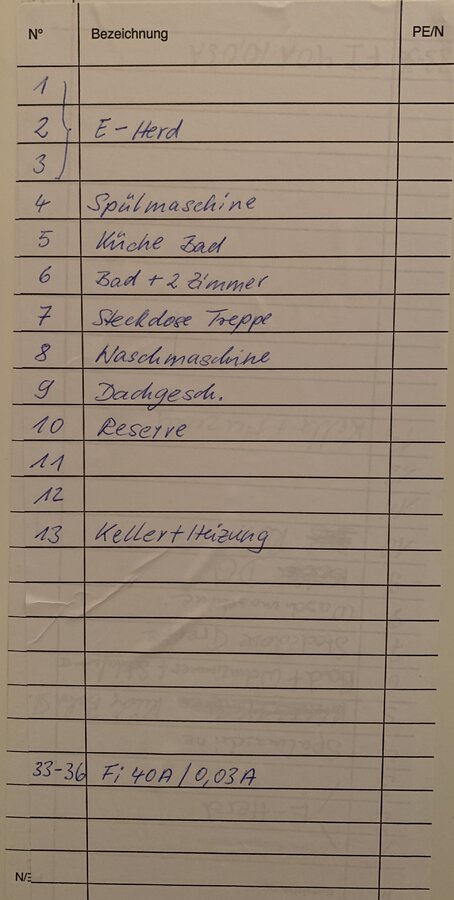 N° Bezeichnung PE/N
1
2 E-Herd
3
4 Spülmaschine
5 Küche Bad
6 Bad + 2 Zimmer
7 Steckdose Treppe
8 Waschmaschine
9 Dachgesch.
10 Reserve
11
12
13 Keller + Heizung
33-36 Fi 40A / 0,03A